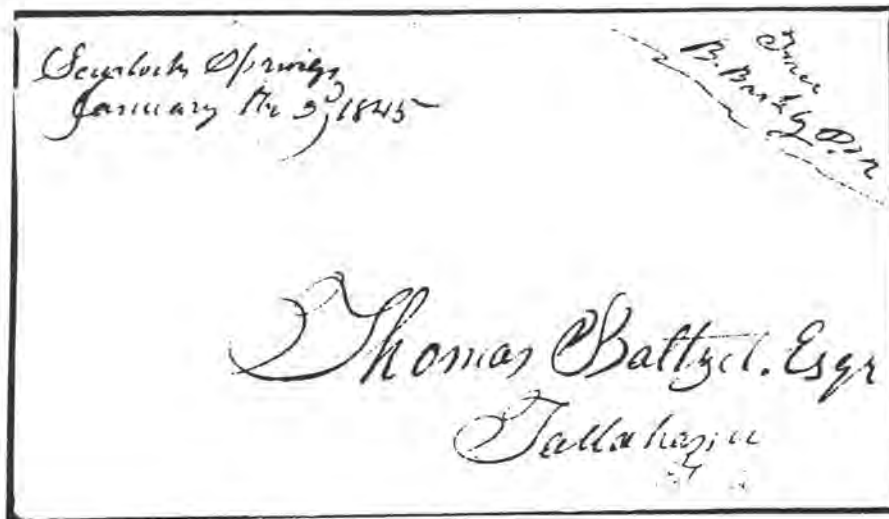 Scurlock Springs
January the 3d, 1845
Free
B. Bush P.M
Thomas Baltzel. Esqr
Tallahassee